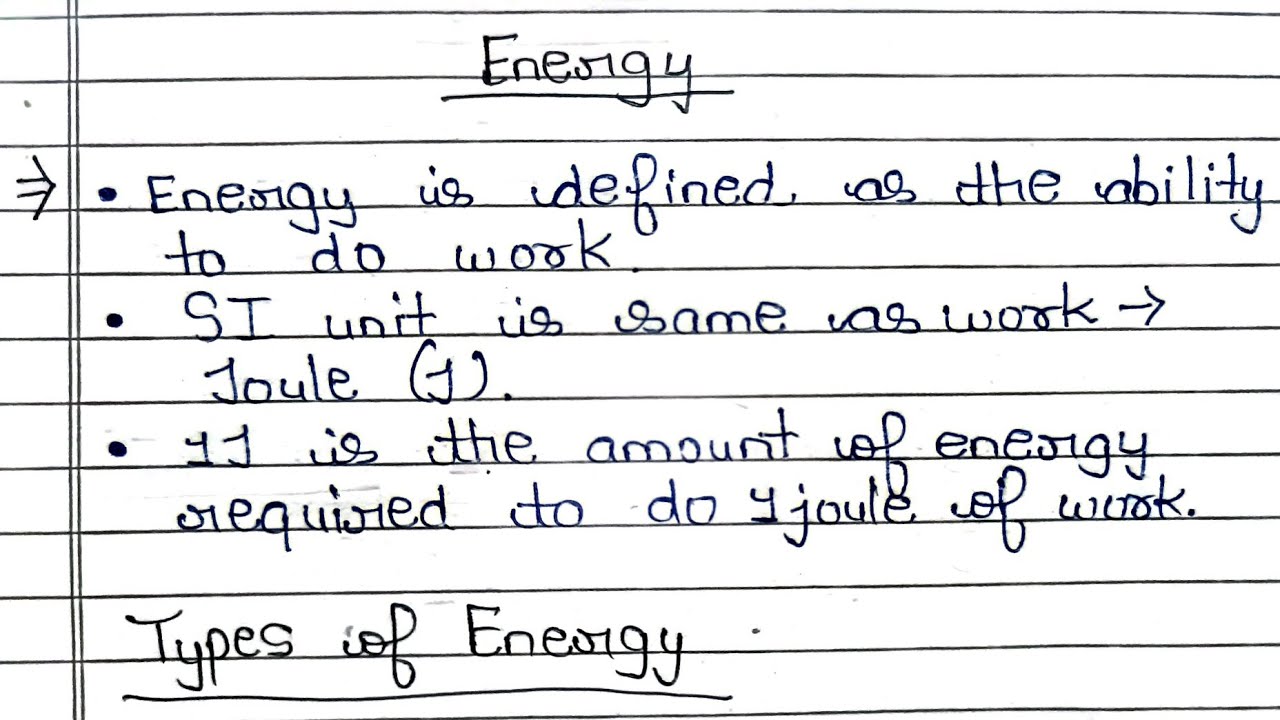 Energy
⇒ • Energy is defined as the ability
to do work.
• SI unit is same as work →
Joule (J).
• 1J is the amount of energy
required to do 1 joule of work.
Types of Energy